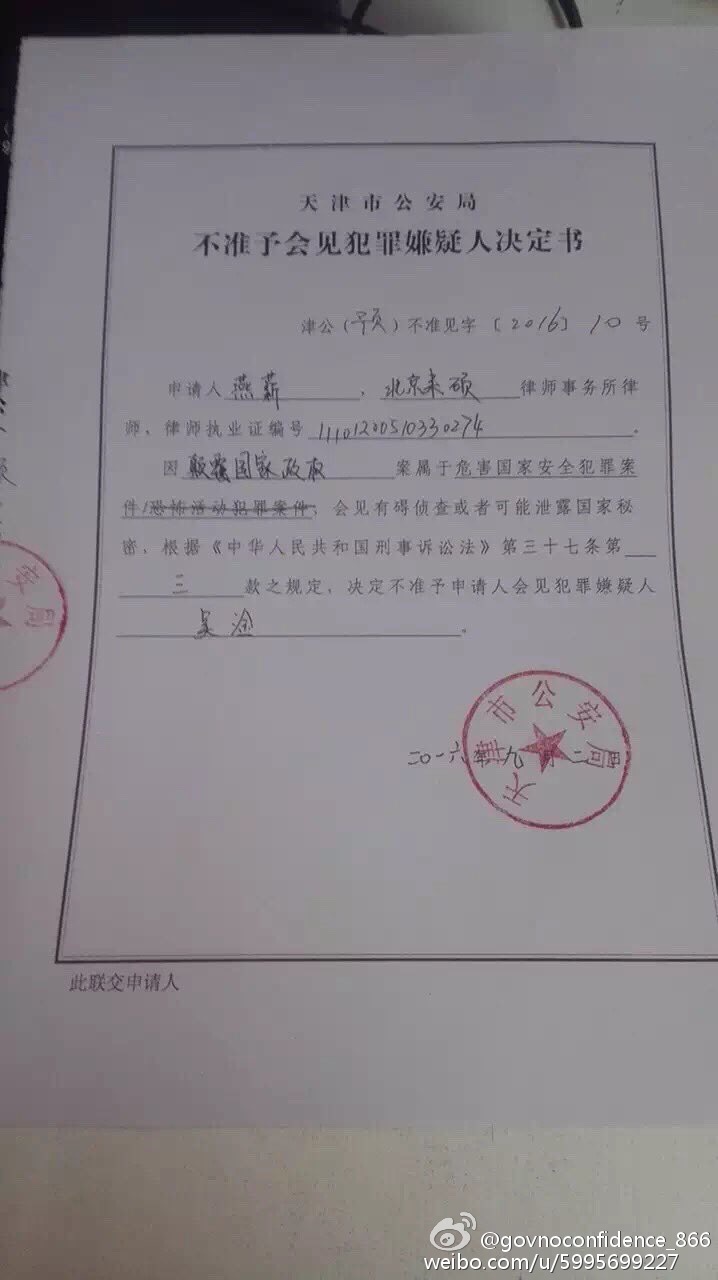 天津市公安局
不准予会见犯罪嫌疑人决定书
津公（预）不准见字〔2016〕10号
申请人燕薪，北京来硕律师事务所律
师，律师执业证编号11101200510330274。
因颠覆国家政权案属于危害国家安全犯罪案
件/恐怖活动犯罪案件，会见有碍侦查或者可能泄露国家秘
密，根据《中华人民共和国刑事诉讼法》第三十七条第
三款之规定，决定不准予申请人会见犯罪嫌疑人
吴淦。
天津市公安局
二〇一六年九月二
安局
此联交申请人
@govnoconfidence_866
weibo.com/u/5995699227